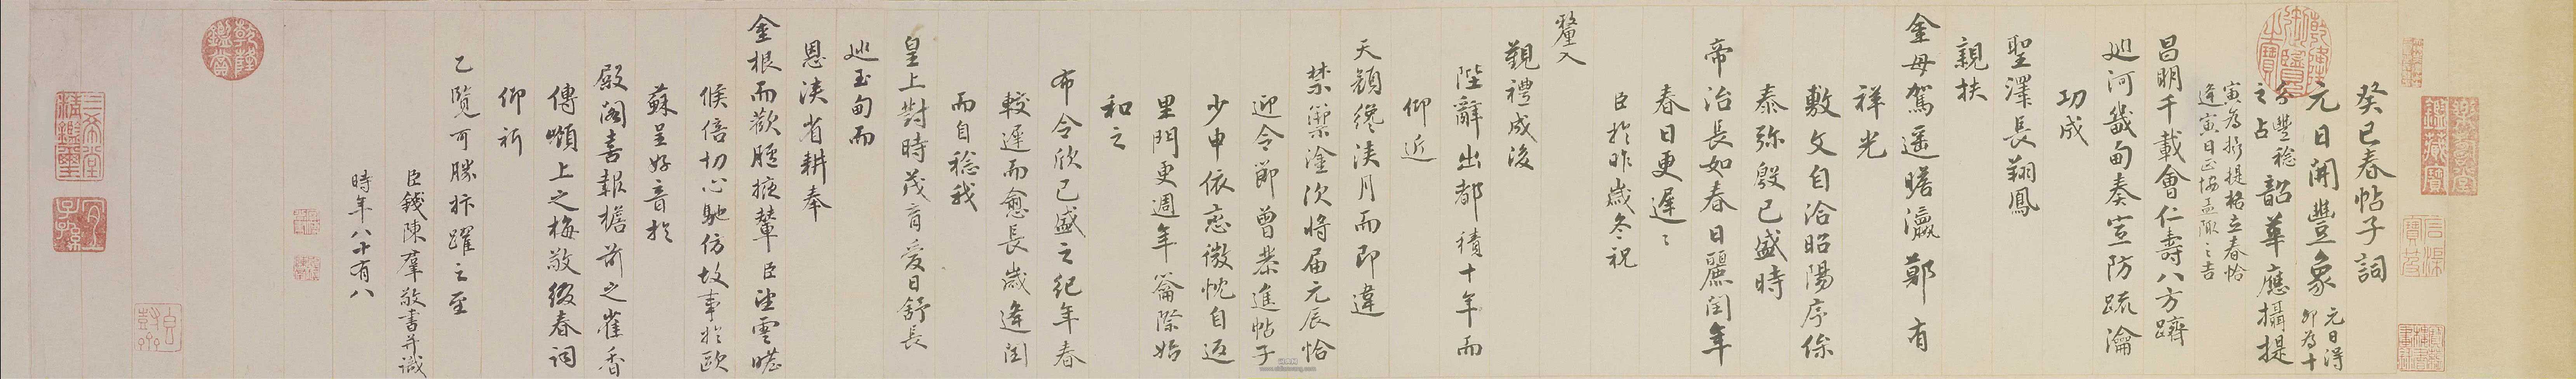 癸巳春帖子詞
元日開豐象元日得卯為十
分豐稔之占韶華應攝提
寅為攝提格立春恰逢寅日正協孟陬之吉
昌明千載會仁壽八方躋
巡河畿甸奏宣防疏瀹
功成
聖澤長翔鳳
親扶
金母駕遥瞻瀛鄚有
祥光
敷文自洽昭陽序綵
泰弥殷已盛時
帝治長如春日麗閏年
春日更遲〻
臣於昨歲冬祝
釐入
覲禮成後
陛辭出都積十年而
仰近
天顏纔浹月而即違
禁籞淦次將届元辰恰
迎令節曾恭進帖子
少申依戀微忱自返
里門更週年籥際始
和之
布令欣已盛之紀年春
較遲而愈長歲逢閏
而自稔我
皇上對時茂育愛日舒長
巡玉甸而
恩浹省耕奉
金根而歡騰掖輦臣望雲曕
倏倍切心馳仿故事於歐
蘇呈好音於
殿閣喜報檐前之雀香
傳嶺上之梅敬綴春詞
仰祈
乙覽可勝抃躍之至
臣錢陳羣敬書并識
時年八十有八
乾隆鑑賞
三希堂精鑑璽
宜子孫